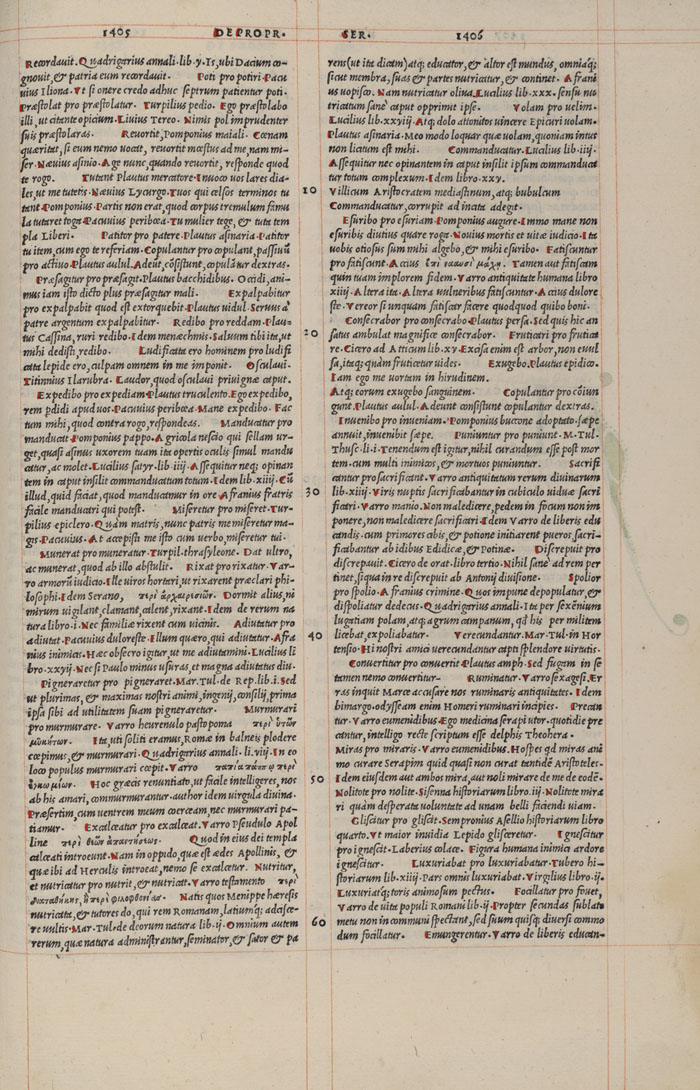 1405 DE PROPR.
Recordauit. Quadrigarius annali. lib. y. Is, ubi Dacium co-
gnouit, & patria eum recordauit. Poti pro potiri. Pacu
uius Iliona. Vt si onere credo adhuc septrum patientur poti.
Præstolat pro præstolatur. Turpilius pedio. Ego præstolabo
illi, ut citante opicium. Liuius Tereo. Nimis pol imprudenter
suis præstolaras. Reuortit, Pomponius maiali. Cœnam
quæritat, si eum nemo uocat, reuortit mœstus ad me, nam mi-
ser. Næuius asinio. Age nunc quando reuortit, responde quod
te rogo. Tutant Plautus mercatore. Inuoco uos lares dia-
les, ut me tutetis. Næuius Lycurgo. Tuos qui celsos terminos tu
tant. Pomponius. Partis non erat, quod corpus tremulum fimus
la tutaret toga. Pacuuius peribœa. Tu mulier tege, & tuta tem
pla Liberi. Patitor pro patere. Plautus asinaria. Patitor
tu item, cum ego te referiam. Copulantur pro copulant, passiuũ
pro actiuo. Plautus aulul. Adeut, cõsistunt, copulãtur dextras.
Præsagitur pro præsagit. Plautus bacchidibus. Ocidi, ani-
mus iam isto dicto plus præsagitur mali. Expalpabitur
pro expalpabit quod est extorquebit. Plautus uidul. Seruus à
patre argentum expalpabitur. Redibo pro reddam. Plau-
tus Cassina, ruri redibo. Idem menæchmis. Saluum tibi ita, ut
mihi dedisti, redibo. Ludificata ero hominem pro ludifi
cata lepide ero, culpam omnem in me imponit. Osculaui.
Titinnius Ilarubra. Laudor, quod osculaui priuignæ caput.
Expedibo pro expediam Plautus truculento. Ego expedibo,
rem pdidi apud uos. Pacuuius peribœa. Mane expedibo. Fac
tum mihi, quod contra rogo, respondeas. Manducatur pro
manducat. Pomponius pappo. Agricola nescio qui sellam ur-
get, quasi asinus uxorem tuam ita opertis oculis simul mandu
catur, ac molet. Lucilius satyr. lib. iiij. Assequitur neq; opinan
tem in caput insilit commanducatur totum. Idem lib. xiiij. Cũ
illud, quid faciat, quod manducamur in ore. Afranius fratris
facile manducari qui potest. Miseretur pro miseret. Tur-
pilius epiclero. Quàm matris, nunc patris me miseretur ma-
gis. Pacuuius. At accepisti me isto cum uerbo, miseretur tui.
Munerat pro muneratur. Turpil. thrasyleone. Dat ultro,
ac munerat, quod ab illo abstulit. Rixat pro rixatur. Var-
ro armorũ iudicio. Ille uiros hortari, ut rixarent præclari phi-
losophi. Idem Serano, περὶ ἀρχαιρεσιῶν. Dormit alius, ni
mirum uigilant, clamant, calent, rixant. Idem de rerum na
tura libro. i. Nec familiæ rixent cum uicinis. Adiutatur pro
adiutat. Pacuuius duloreste. Illum quæro, qui adiutatur. Afra
nius inimicis. Hæc obsecro igitur, ut me adiutamini. Lucilius li
bro. xxvij. Nec si Paulo minus usuras, et magna adiutatus diu.
Pigneraretur pro pigneraret. Mar. Tul. de Rep. lib. i. Sed
ut plurimas, & maximas nostri animi, ingenij, consilij, prima
ipsa sibi ad utilitatem suam pigneraretur. Murmurari
pro murmurare. Varro heurenulo pasto poma
Ita, uti soliti eramus, Romæ in balneis plodere
cœpimus, & murmurari. Quadrigarius annali. li. viij. In eo
loco populus murmurari cœpit. Varro
Hoc græcis renuntiato, ut facile intelligeres, nos
ab his amari, commurmurantur. author idem uirgula diuina.
Præsertim, cum uentrem meum coerceam, nec murmurari pa-
tiamur. Excalceatur pro excalceat. Varro Pseudulo Apol
line Quod in eius dei templa
calceati introeunt. Nam in oppido, quæ est ædes Apollinis, &
quæ ibi ad Herculis introeat, nemo se excalcetur. Nutritur,
et nutricatur pro nutrit, & nutricat. Varro testamento περὶ
διαθηκῶν. Natis quos Menippe hæresis
nutricata, & tutores do, qui rem Romanam, latiumq; adaisce-
re uultis. Mar. Tul. de deorum natura lib. ij. Omnium autem
rerum, quæ natura administrantur, seminator, & sator & pa
10
20
30
40
50
60
SER. 1406
rens (ut ita dicam) atq; educator, & altor est mundus, omniaq;
sicut membra, suas & partes nutricatur, & continet. Afrani
us uopisco. Nam nutricatur oliua. Lucilius lib. xxx. sensu nu
tricatum sanè caput opprimit ipse. Volam pro uelim.
Lucilius lib. xxviij. Atq; dolo attonitos uincere Epicuri uolam.
Plautus asinaria. Meo modo loquar quæ uolam, quoniam intus
non licitum est mihi. Commanducatur. Lucilius lib. iiij.
Assequitur nec opinantem in caput insilit ipsum commanducat
tur totum complexum. Idem libro. xxv.
Villicum Aristocratem mediastinum, atq; bubulcum
Commanducatur, corrupit ad incita adegit.
Esuribo pro esuriam. Pomponius augure. Immo mane non
esuribis diutius quare roga. Nouius mortis et uitæ iudicio. Ita
uobis otiosus sum mihi algebo, & mihi esuribo. Fatiscuntur
pro fatiscunt. Accius ἐπὶ ναυσὶ μάχῃ. Tamen aut fatiscam
quin tuam implorem fidem. Varro antiquitate humana libro
xiiij. Altera ita. Altera uulneribus fatiscuntur. Accius dulore
ste. Vereor si unquam fatiscar facere quodquod quibo boni.
Consecrabor pro consecrabo. Plautus persa. Sed quis hic an
satus ambulat magnifice consecrabor. Fruticari pro fruticæ
re. Cicero ad Atticum lib. xv. Excisa enim est arbor, non euul
sa, itaq; quàm fruticetur uides. Exugebo. Plautus epidico.
Iam ego me uortam in hirudinem.
Atq; eorum exugebo sanguinem. Copulantur pro cõiun
gunt. Plautus aulul. Adeunt consistunt copulantur dextras.
Inuenibo pro inueniam. Pomponius bucone adoptato. sæpe
annuit, inuenibit sæpe. Puniuntur pro puniunt. M. Tul.
Thusc. li. i. Tenendum est igitur, nihil curandum esse post mor
tem. cum multi inimicos, & mortuos puniuntur. Sacrifi
cantur pro sacrificant. Varro antiquitatum rerum diuinarum
lib. xiiij. Viris nuptis sacrificabantur in cubiculo uiduæ sacri
ficari. Varro manio. Non maledicere, pedem in focum non im
ponere, non maledicere sacrificari. Idem Varro de liberis edu
candis. cum primores cibis, & potione initiarent pueros, sacri-
ficabantur ab idibus Edidicæ, & Potinæ. Discrepuit pro
discrepauit. Cicero de orat. libro tertio. Nihil sanè ad rem per
tinet, si qua in re discrepuit ab Antonij diuisione. Spolior
pro spolio. Afranius crimine. Quos impune depopulatur, &
dispoliatur dedecus. Quadrigarius annali. Ita per sexẽnium
lugatiam polam, atq; agrum campanum, qd his per militem
licebat, expoliabatur. Verecundatur. Mar. Tul. in Hor
tensio. Hi nostri amici uerecundantur capti splendore uirtutis.
Conuertitur pro conuertit. Plautus amph. Sed fugam in se
tamen nemo conuertitur. Ruminatur. Varro sexagesi. Er
ras inquit Marce accusare nos ruminaris antiquitates. Idem
bimargo. odysseam enim Homeri ruminari incipies. Precan
tur. Varro eumenidibus. Ego medicina serapi utor. quotidie pre
cantur, intelligo recte scriptum esse delphis Theohera.
Miras pro miraris. Varro eumenidibus. Hospes qd miras ani
mo curare Serapim quid quasi non curat tantidẽ Aristoteles.
Idem eiusdem aut ambos mira, aut noli mirare de me eodẽ.
Nolitote pro nolite. Sisenna historiarum libro. iij. Nolitote mira
ri quàm desperata uoluntate ad unam belli faciendi uiam.
Gliscitur pro gliscit. Sempronius Asellio historiarum libro
quarto. Vt maior inuidia Lepido glisceretur. Ignescitur
pro ignescit. Laberius colace. Figura humana inimica ardore
ignescitur. Luxuriabat pro luxuriabatur. Tubero hi-
storiarum lib. xiiij. Pars omnis luxuriabat. Virgilius libro. ij.
Luxuriatq; toris animosum pectus. Focillatur pro fouet,
Varro de uita populi Romani lib. ij. Propter secundas sublato
metu non in communi spectant, sed suum quisq; diuersi commo
dum focillatur. Emungerentur. Varro de liberis educan-